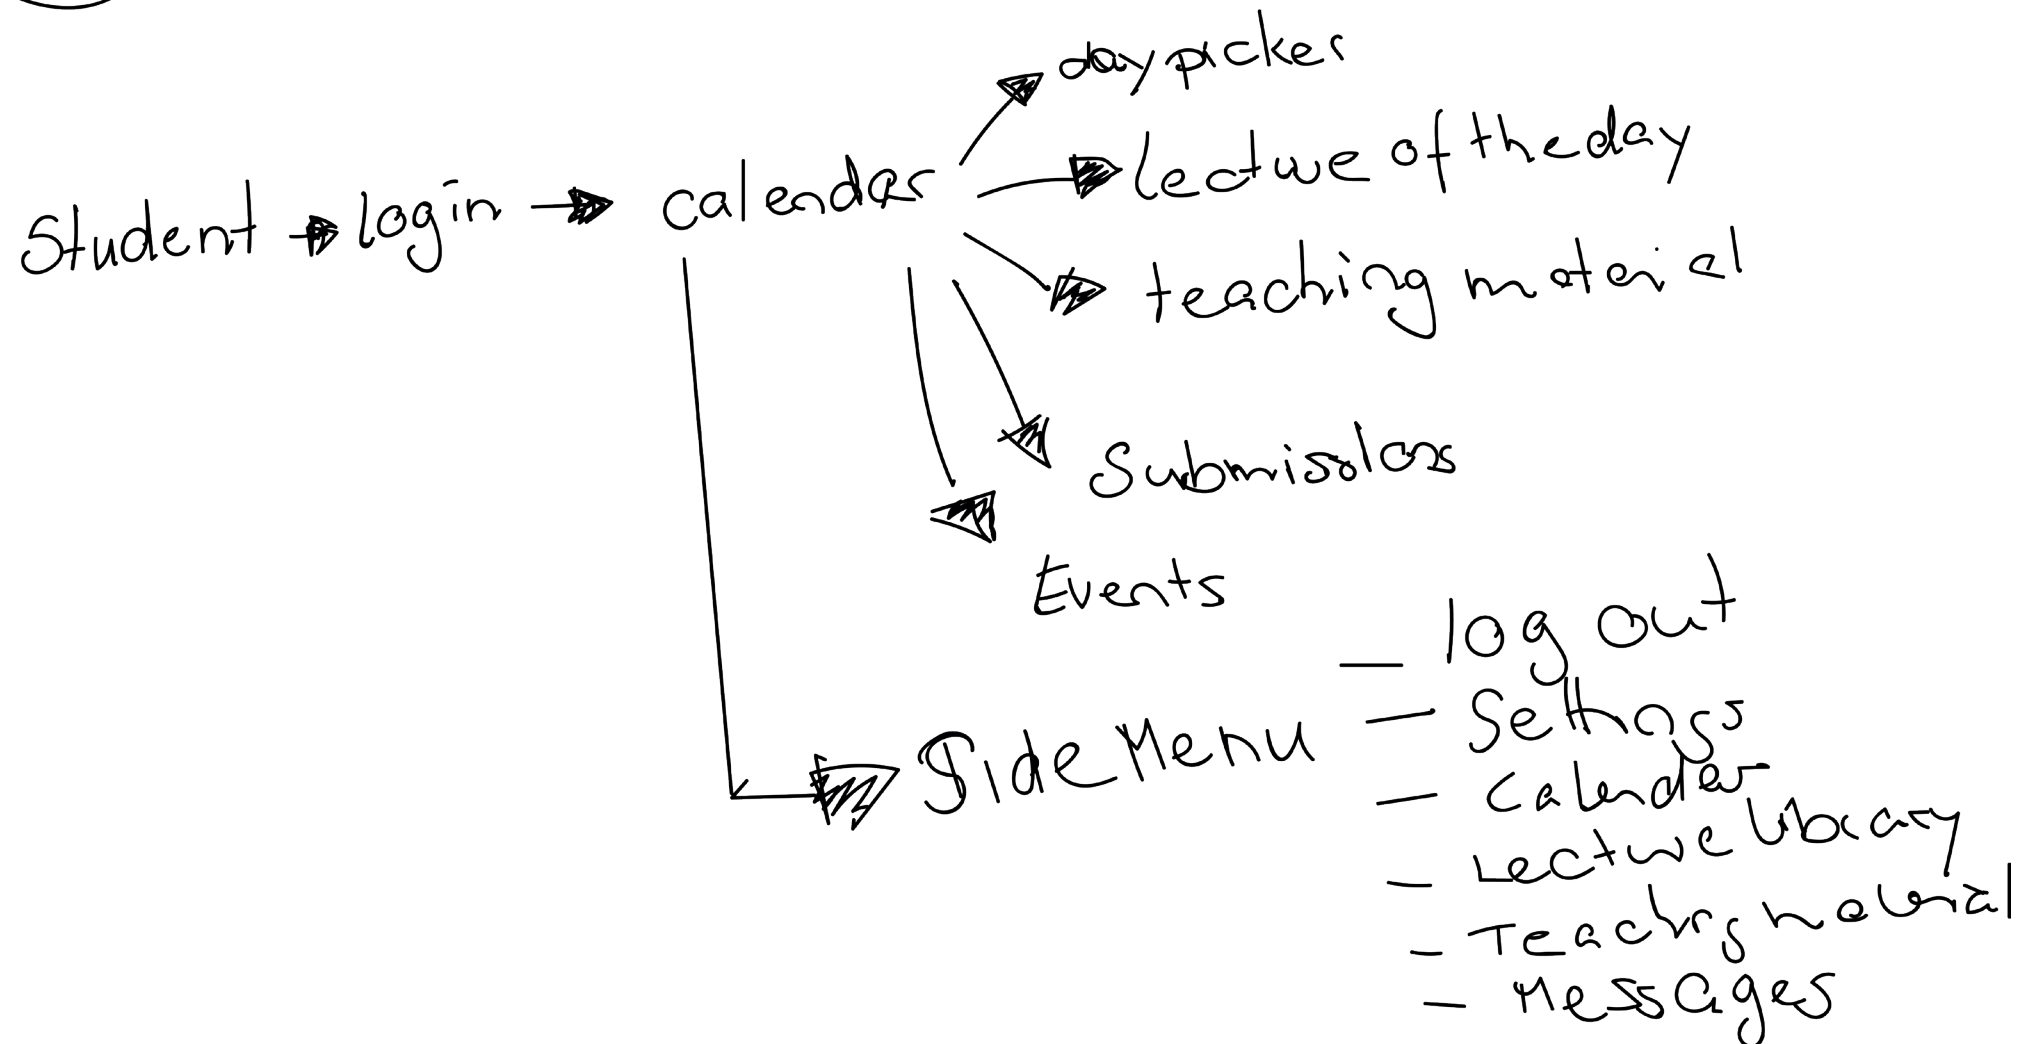 Student login calendar
day picker
lecture of the day
teaching material
Submissions
Events
Side Menu
log out
Settings
Calendar
Lecture library
Teaching material
Messages